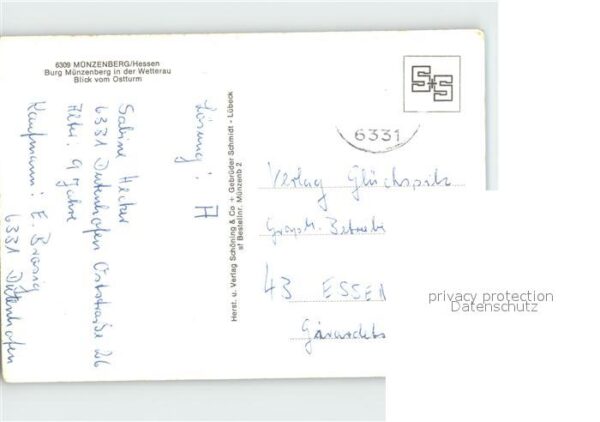 6309 MÜNZENBERG/Hessen
Burg Münzenberg in der Wetterau
Blick vom Ostturm
Lösung: A
Sabine Hecker
6331 Dutenhofen Oststraße 26
Alter: 9 Jahre
Kaufmann: E. Brosig
6331 Dutenhofen
Herst. u. Verlag Schöning & Co + Gebrüder Schmidt - Lübeck
af Bestellnr. Münzenb 2
S+S
6331
Verlag Glückspilz
Graph. Betriebe
43 ESSEN
Girardets
privacy protection
Datenschutz